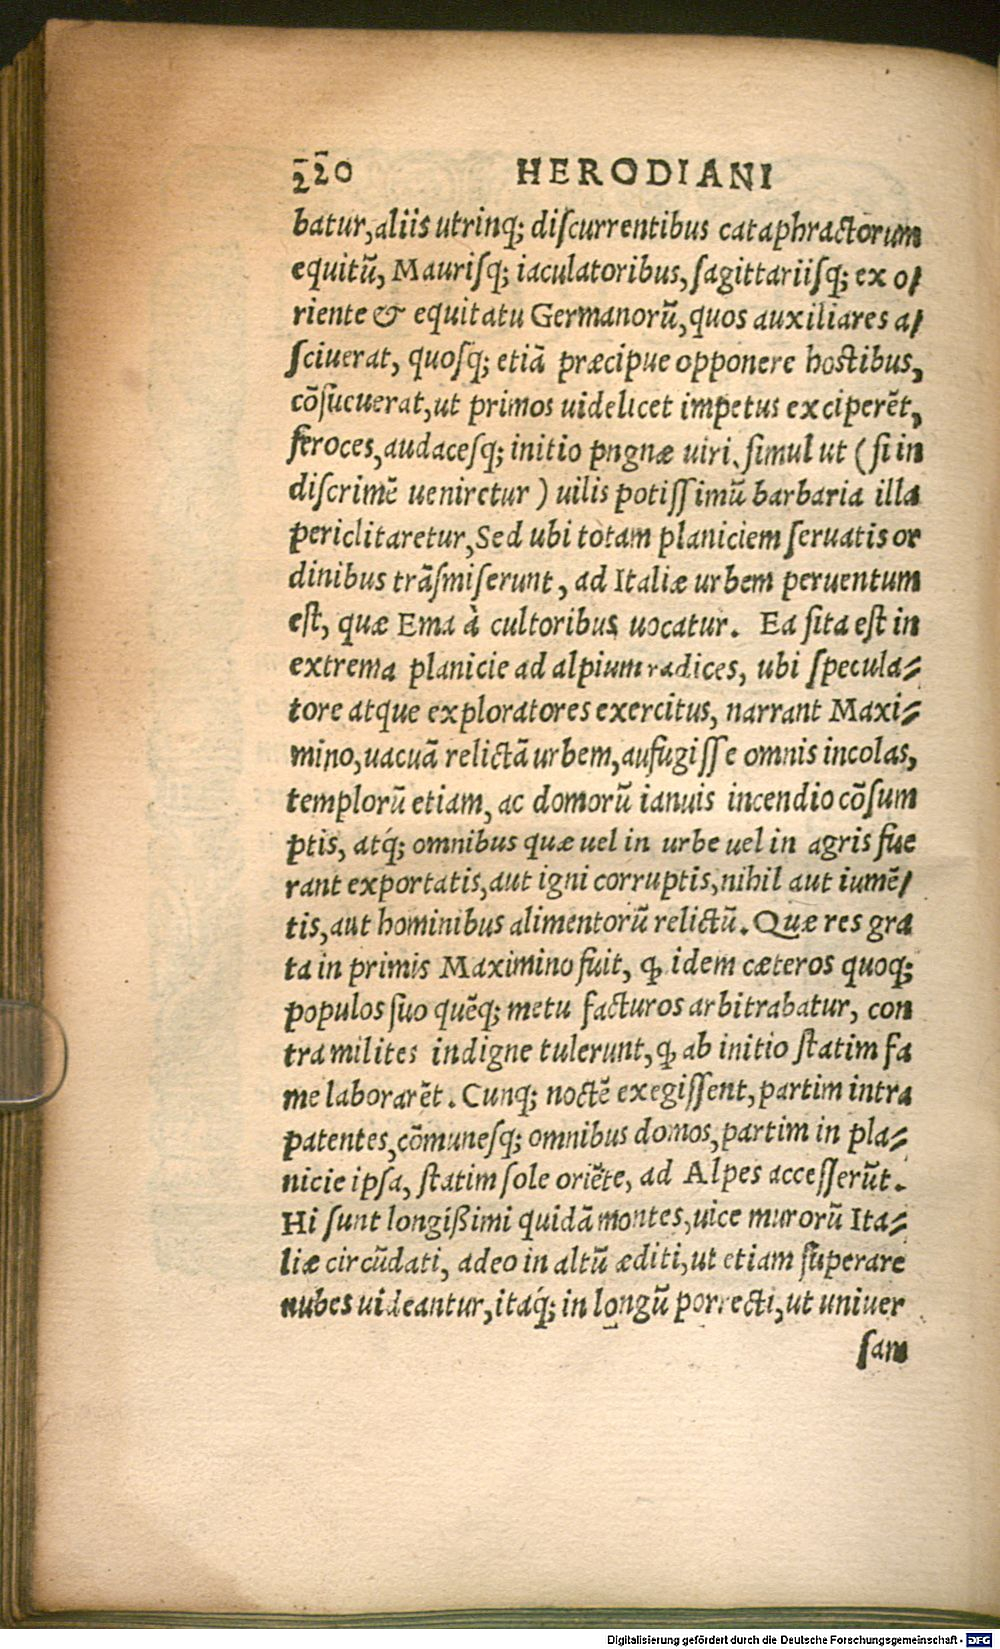 220 HERODIANI
batur, aliis utrinq; diſcurrentibus cataphractorum
equitũ, Mauriſq; iaculatoribus, ſagittariiſq; ex o/
riente & equitatu Germanorũ, quos auxiliares a/
ſciuerat, quoſq; etiã præcipue opponere hostibus,
cõſucuerat, ut primos uidelicet impetus exciperẽt,
feroces, audaceſq; initio pngnæ uiri, ſimul ut (ſi in
diſcrimẽ uenirctur) uilis potiſſimũ barbaria illa
periclitaretur, Sed ubi totam planiciem ſeruatis or
dinibus trãſmiſerunt, ad Italiæ urbem peruentum
eſt, quæ Ema à cultoribus uocatur. Ea ſita eſt in
extrema planicie ad alpium radices, ubi ſpecula⸗
tore atque exploratores exercitus, narrant Maxi⸗
mino, uacuã relictã urbem, aufugiſſe omnis incolas,
templorũ etiam, ac domorũ ianuis incendio cõſum
ptis, atq́; omnibus quæ uel in urbe uel in agris fue
rant exportatis, aut igni corruptis, nihil aut iumẽ/
tis, aut hominibus alimentorũ relictũ. Quæ res gra
ta in primis Maximino fuit, ꝙ idem cæteros quoq;
populos ſuo quẽq; metu facturos arbitrabatur, con
tra milites indigne tulerunt, ꝙ ab initio ſtatim fa
me laborarẽt. Cunq; noctẽ exegiſſent, partim intra
patentes, cõmuneſq; omnibus domos, partim in pla⸗
nicie ipſa, ſtatim ſole oriẽte, ad Alpes acceſſerũt.
Hi ſunt longißimi quidã montes, uice murorũ Ita⸗
liæ circũdati, adeo in altũ æditi, ut etiam ſuperare
nubes uideantur, itaq́; in longũ porrecti, ut uniuer
ſam
Digitalisierung gefördert durch die Deutsche Forschungsgemeinschaft - DFG